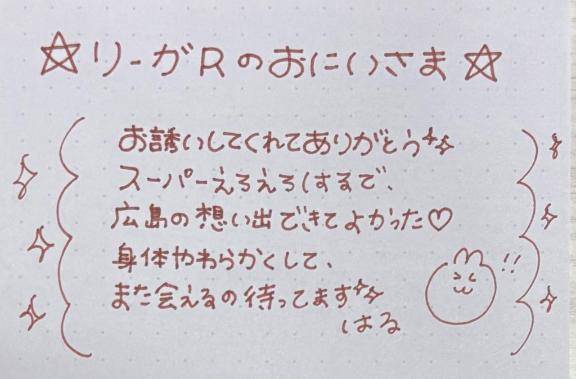 ☆リーガRのおにいさま☆
お誘いしてくれてありがとう✨
スーパーえろえろしするで、
広島の想い出できてよかった♡
身体やわらかくして、
また会えるの待ってます✨
はる
!!